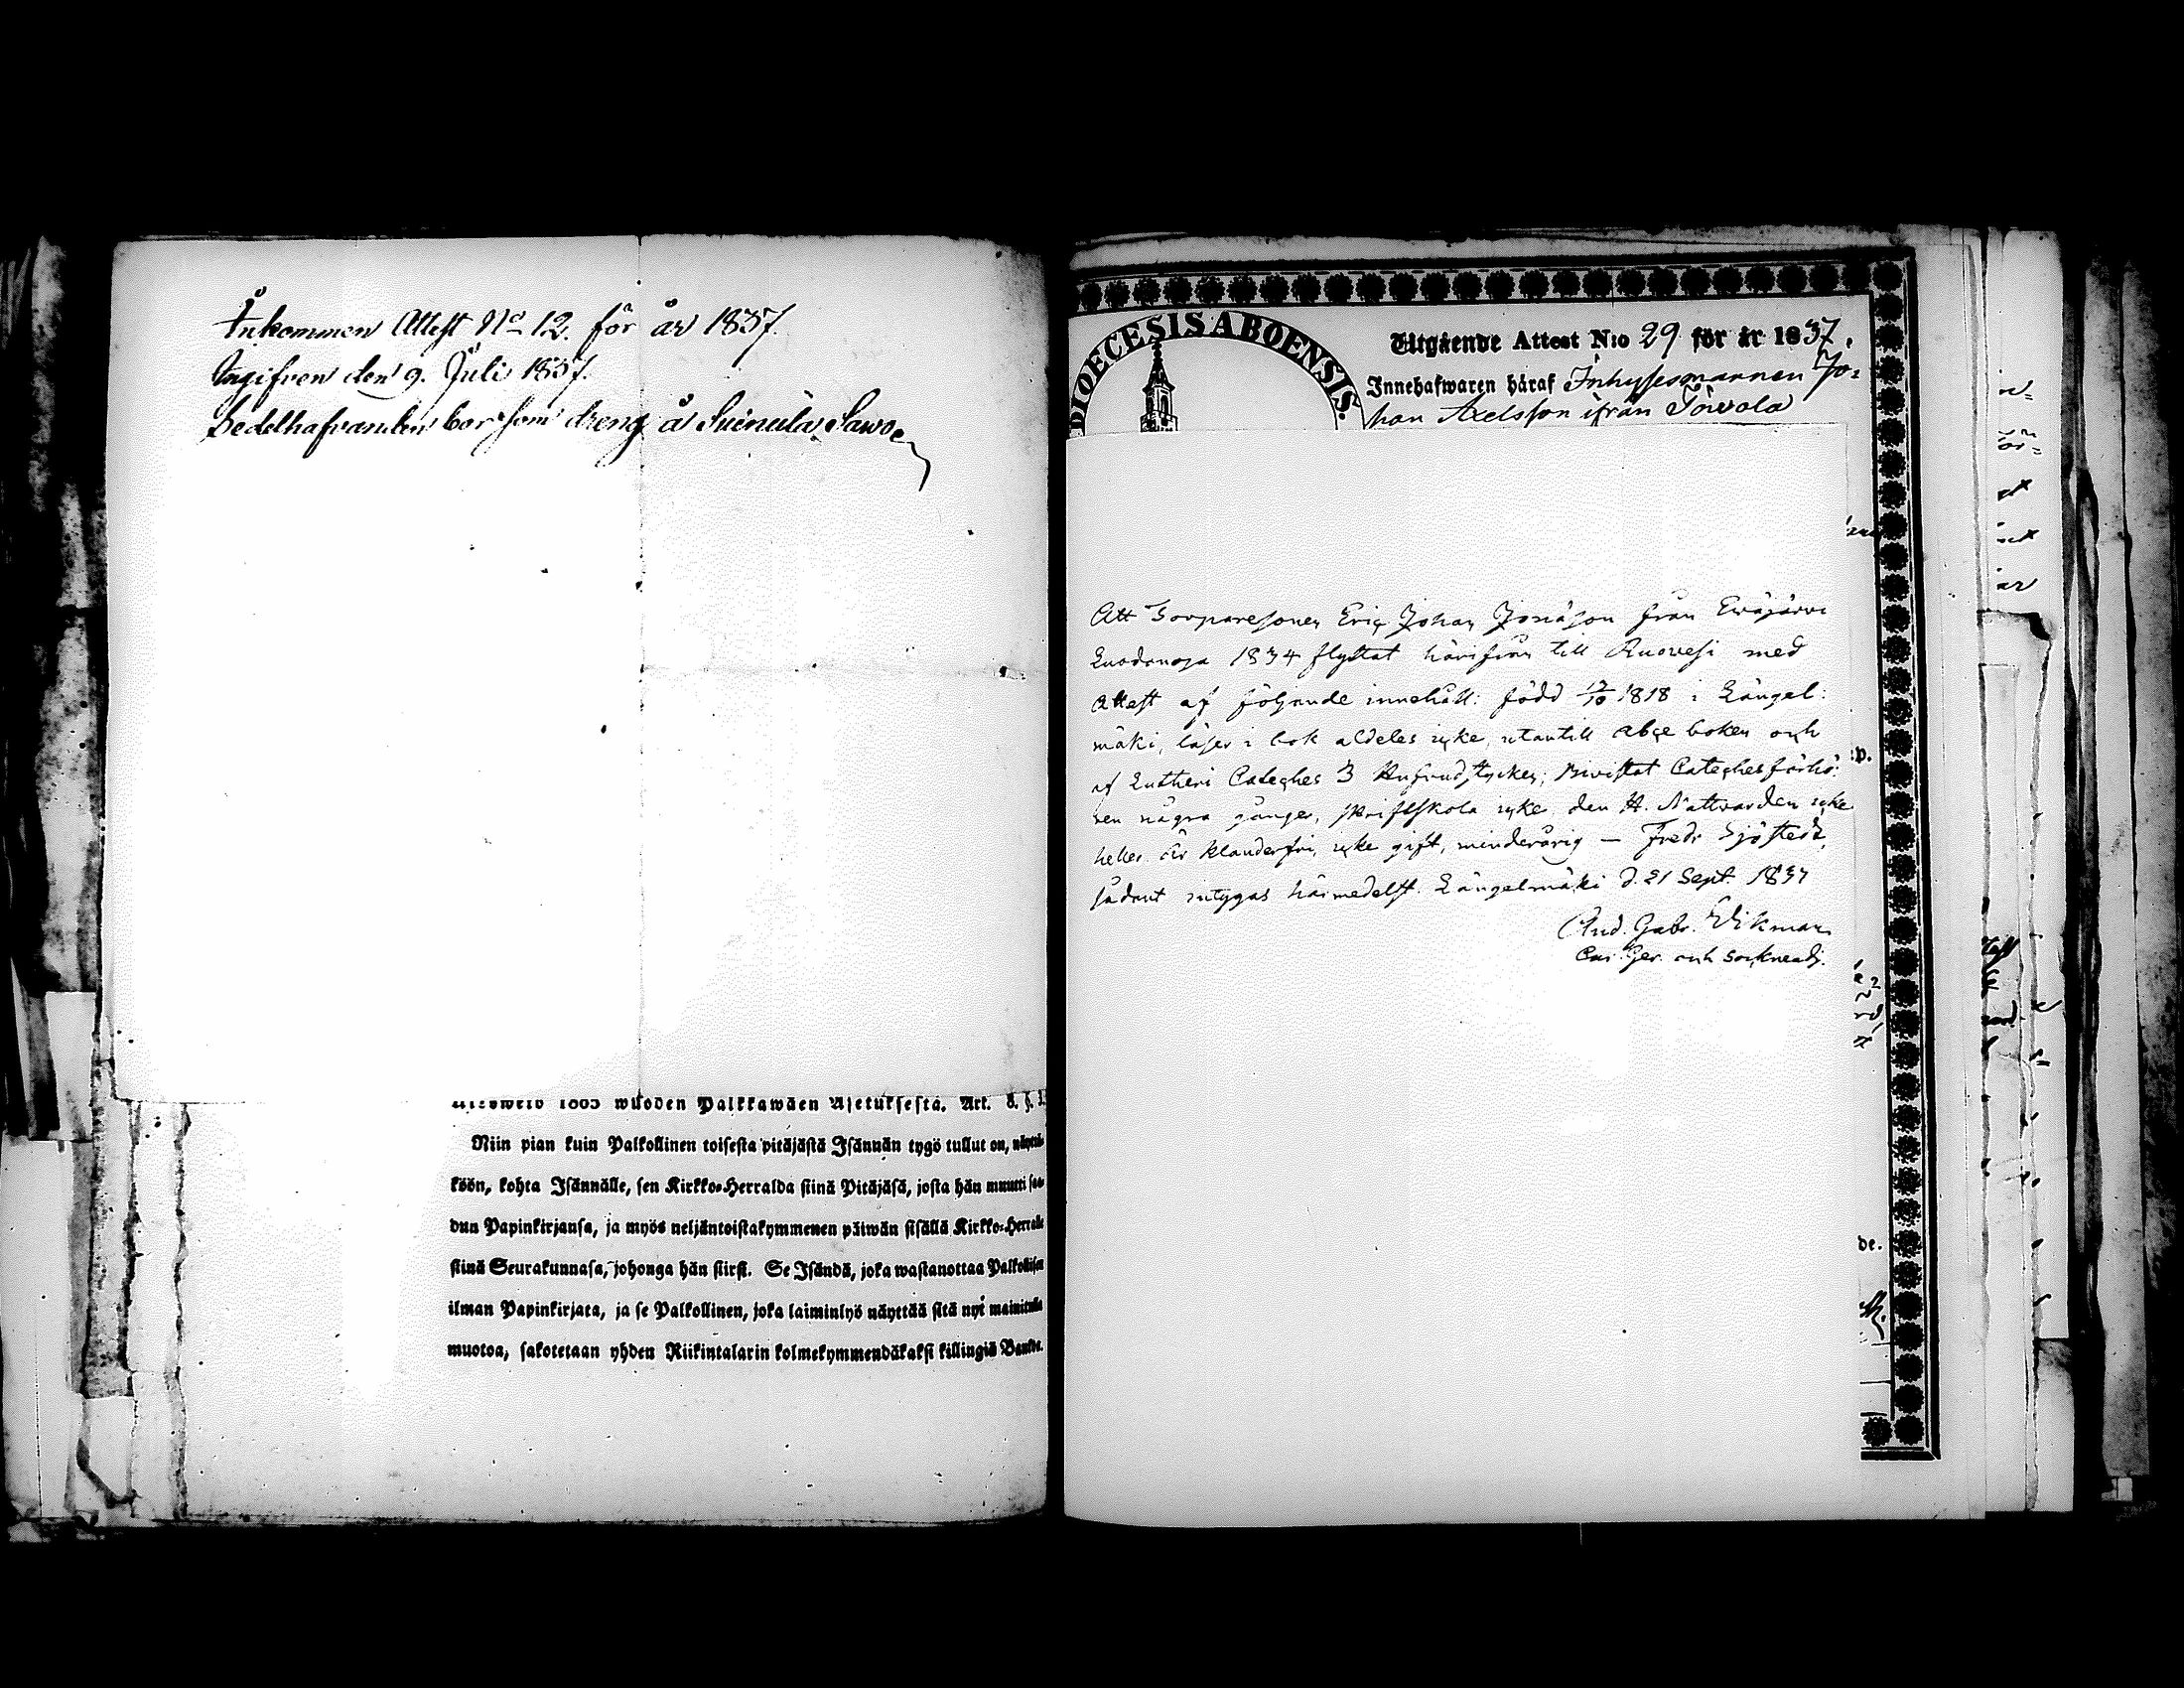 Ankommen Attest No 12. för år 1837.
Ingifven den 9. Juli 1837.
Sedelhafvanden bor som dreng å Suinula Sawo
1805 wuoden Palkkawäen Asetuksesta. Art. 8. §. 1.
Niin pian kuin Palkollinen toisesta pitäjästä Isännän tygö tullut on, näyttä-
köön, kohta Isännälle, sen Kirkko-Herralda siinä Pitäjäsä, josta hän muutti saa-
dun Papinkirjansa, ja myös neljäntoistakymmenen päiwän sisällä Kirkko-Herralle
siinä Seurakunnasa, johonga hän siirsi. Se Isändä, joka wastanottaa Palkollisen
ilman Papinkirjata, ja se Palkollinen, joka laiminlyö näyttää sitä nyt mainitulla
muotoa, sakotetaan yhden Riikintalarin kolmekymmendäkaksi killingiä Banko.
DIOECESIS ABOENSIS.
Utgående Attest N:o 29 för år 1837.
Innehafwaren häraf Inhysesmannen Jo-
han Axelsson ifrån Torvola
Att Torparesonen Eric Johan Jonæson från Eräjärvi
1834 flyttat härifrån till Ruovesi med
attest af följande innehåll: född 1818 i Längel:
mäki, läser i bok aldeles icke, utantill abc boken och
af Lutheri Cateches 3 Hufvudstycken; bivistat Catechesförhö:
ren några gånger, skriftskola icke, den H. Nattvarden icke
heller. Är klanderfri, icke gift, minderårig — Fredr Sjöstedt,
sådant intygas härmedelst. Längelmäki d. 21 Sept. 1837
And. Gabr. Wikman
Cur. Ger. och Sockneadj.